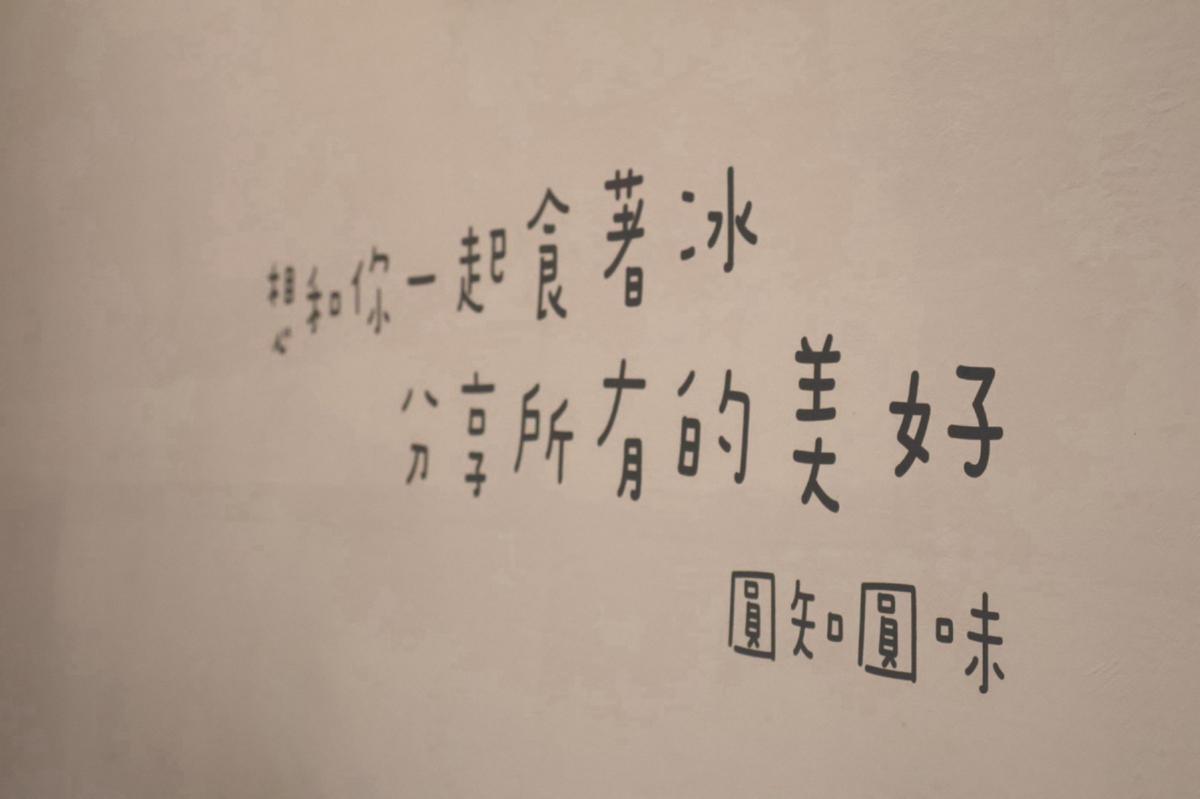 想和你一起食著冰
分享所有的美好
圓知圓味